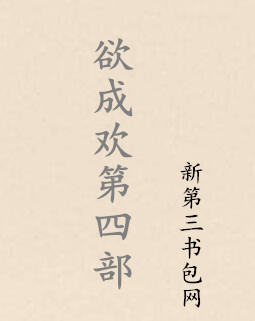 欲成欢第四部
新第三书包网